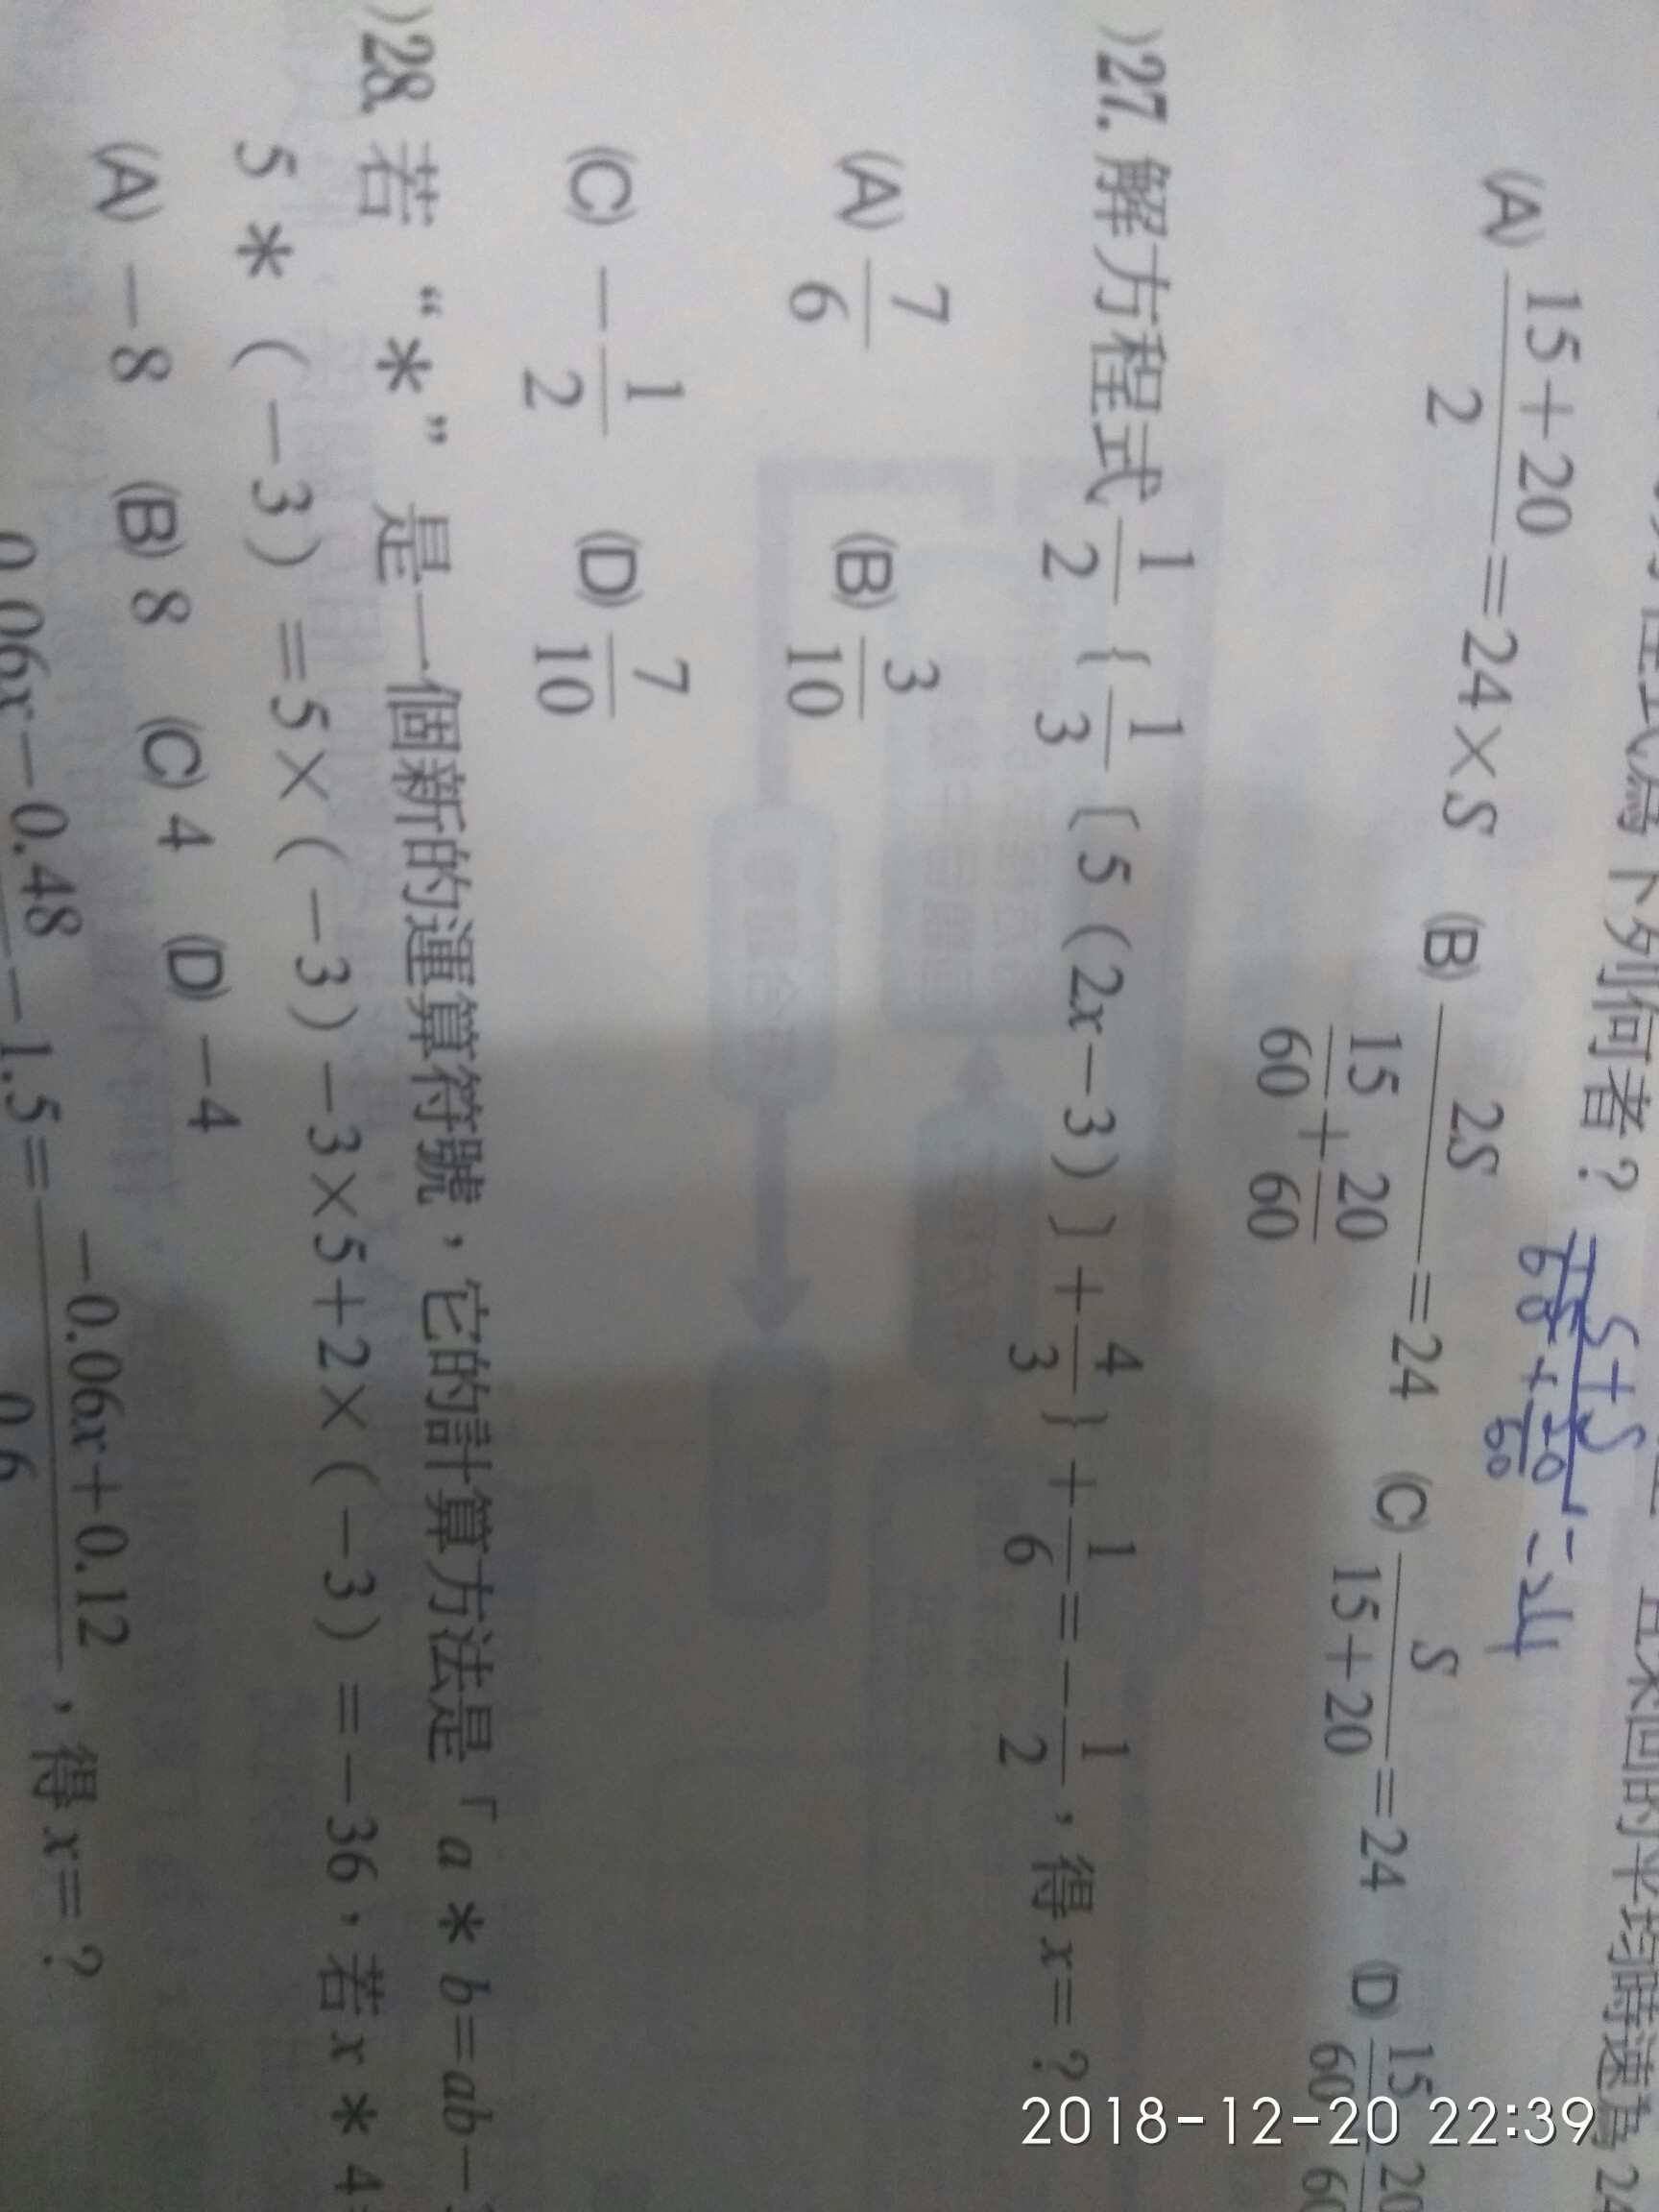 下列何者？
時速為24
S+S
=24
(A) 15+20/2=24×S (B) 2S/(15/60+20/60)=24 (C) S/(15+20)=24 (D) 15/60 20/60
)27. 解方程式1/2{1/3〔5(2x−3)〕+4/3}+1/6=−1/2，得x=？
(A) 7/6 (B) 3/10
(C) −1/2 (D) 7/10
)28. 若“＊”是一個新的運算符號，它的計算方法是「a＊b=ab−
5＊(−3)=5×(−3)−3×5+2×(−3)=−36，若x＊4
(A) −8 (B) 8 (C) 4 (D) −4
0.06x−0.48 −1.5= −0.06x+0.12/0.6，得x=？
2018-12-20 22:39